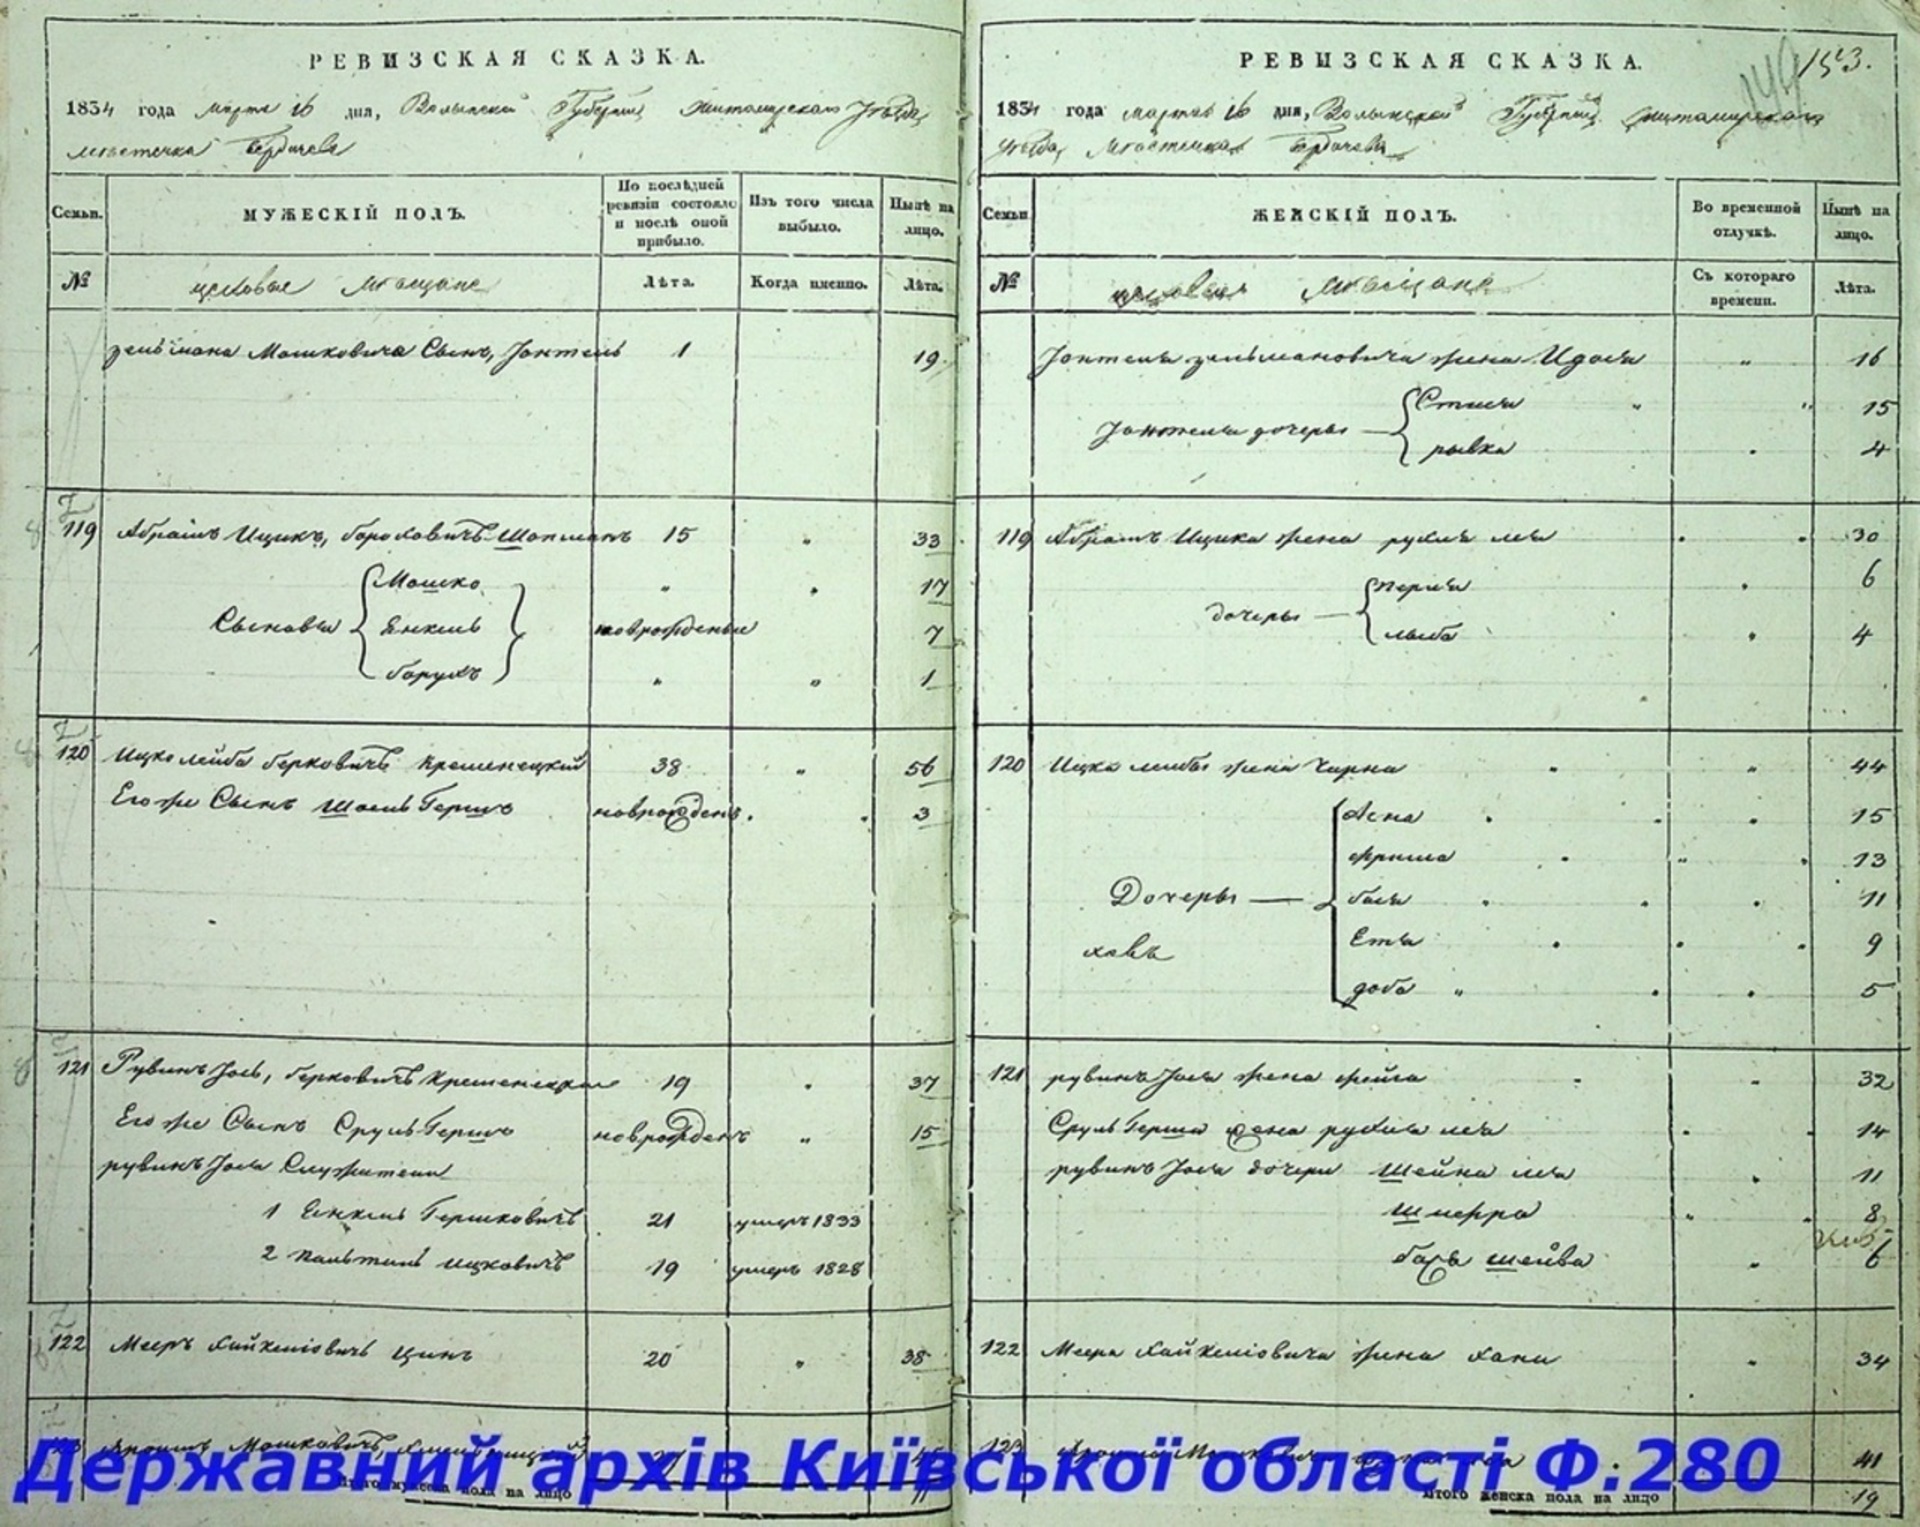 РЕВИЗСКАЯ СКАЗКА.
1834 года марта 16 дня, Волынской Губернии Житомирскаго Уезда,
местечка Бердичева
Семьи. МУЖЕСКІЙ ПОЛЪ. По послѣдней ревизіи состояло и послѣ оной прибыло. Изъ того числа выбыло. Нынѣ на лицо.
№ цеховые мѣщане Лѣта. Когда именно. Лѣта.
зельмана Мошковича Сынъ, Іонтель 1 19
119 Абрамъ Ицикъ, бороховичъ 15 " 33
Мошко " " 17
Сыновья Енкель новрожденые 7
борухъ " " 1
120 Ицко лейба берковичъ кременецкий 38 " 56
Его же Сынъ Шоель Гершъ новрожденъ 3
121 Рувинъ Іось, берковичъ кременецкий 19 " 37
Его же Сынъ Сруль Гершъ новрожденъ " 15
рувинъ Іося Служители
1 Енкель Гершковичъ 21 умеръ 1833
2 ицковичъ 19 умеръ 1828
122 Мееръ цинъ 20 " 38
123 Мошковичъ
Итого мужеска пола на лицо
РЕВИЗСКАЯ СКАЗКА.
149 153.
1834 года марта 16 дня, Волынской Губернии Житомирскаго
уезда, Местечка Бердичева
Семьи. ЖЕНСКІЙ ПОЛЪ. Во временной отлучкѣ. Нынѣ на лицо.
№ цеховыя мѣщане Съ котораго времени. Лѣта.
Іонтеля зельмановича жена Идося " 16
Іонтеля дочеры Стися " " 15
рывка " 4
119 Абрамъ Ицика жена рухля лея 30
дочеры перля " 6
лыба " 4
120 Ицка лейбы жена Чарна " " 44
Асна 15
фрима 13
Дочеры — бася 11
Етя 9
доба " 5
121 рувинъ Іося жена фейга " 32
Сруль Герша жена рухля лея 14
рувинъ Іося дочери Шейна лея 11
" 8
шейва " 6
122 Меера жена хана " 34
123 41
Итого женска пола на лицо 19
Державний архів Київської області Ф.:280